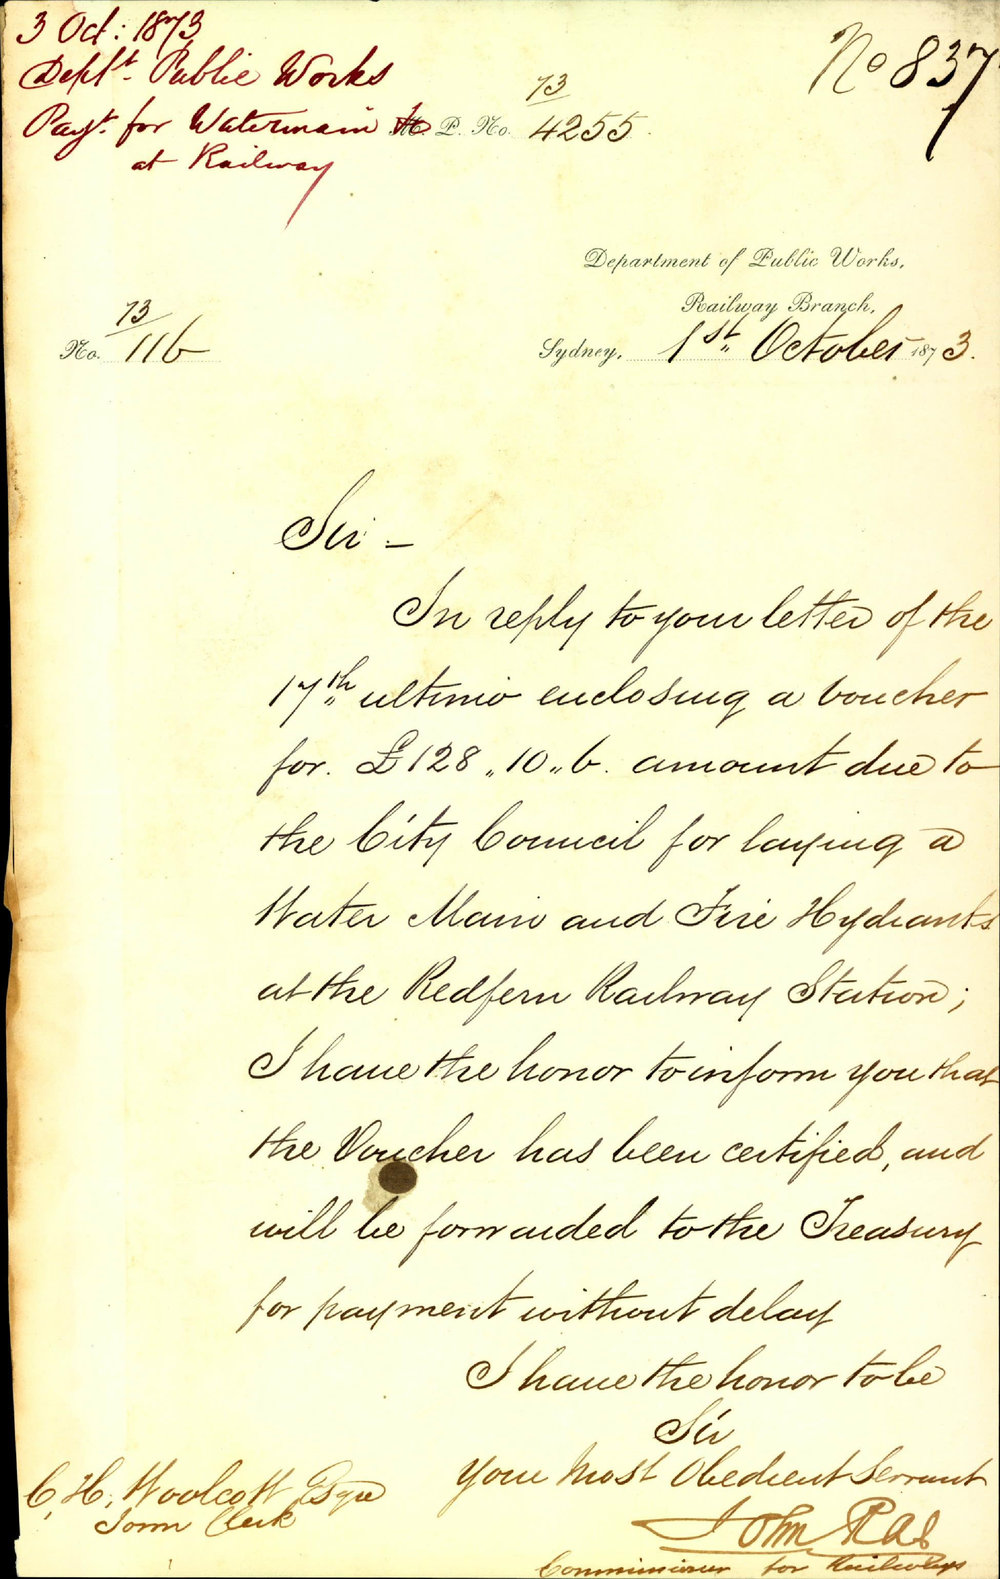 3 Oct: 1873
No 837
Deptt. Public Works
73
Payt. for Watermain P. No. 4255
at Railway
Department of Public Works,
Railway Branch,
73
No. 116
Sydney, 1st October 1873.
Sir –
In reply to your letter of the
17th ultimo enclosing a voucher
for. £128,,10,,6. amount due to
the City Council for laying a
Water Main and Fire Hydrants
at the Redfern Railway Station;
I have the honor to inform you that
the Voucher has been certified, and
will be forwarded to the Treasury
for payment without delay
I have the honor to be
Sir
Your Most Obedient Servant
C. H. Woolcott Esqre
Town Clerk
John Rae
Commissioner for Railways